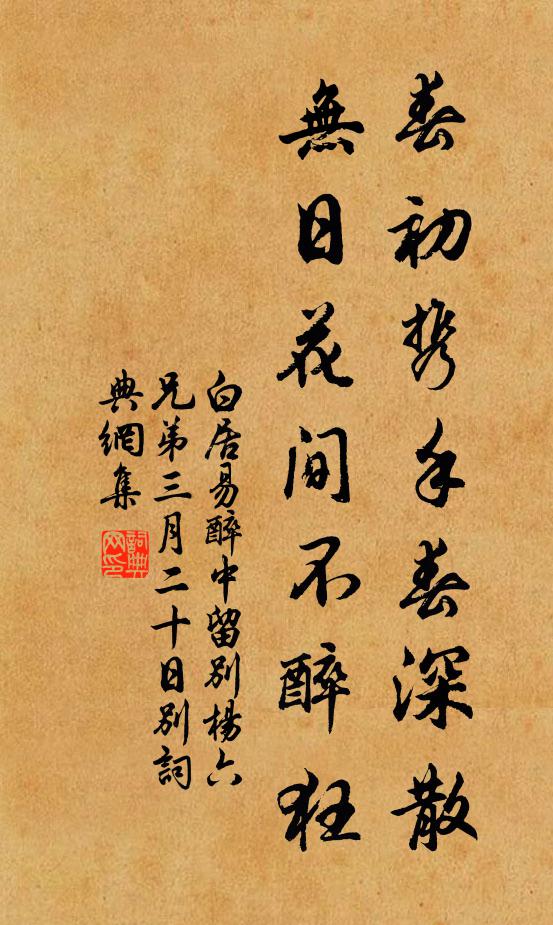 春初携手春深散
無日花間不醉狂
白居易醉中留別楊六
兄弟三月二十日別詞
典網集
詞典
网印